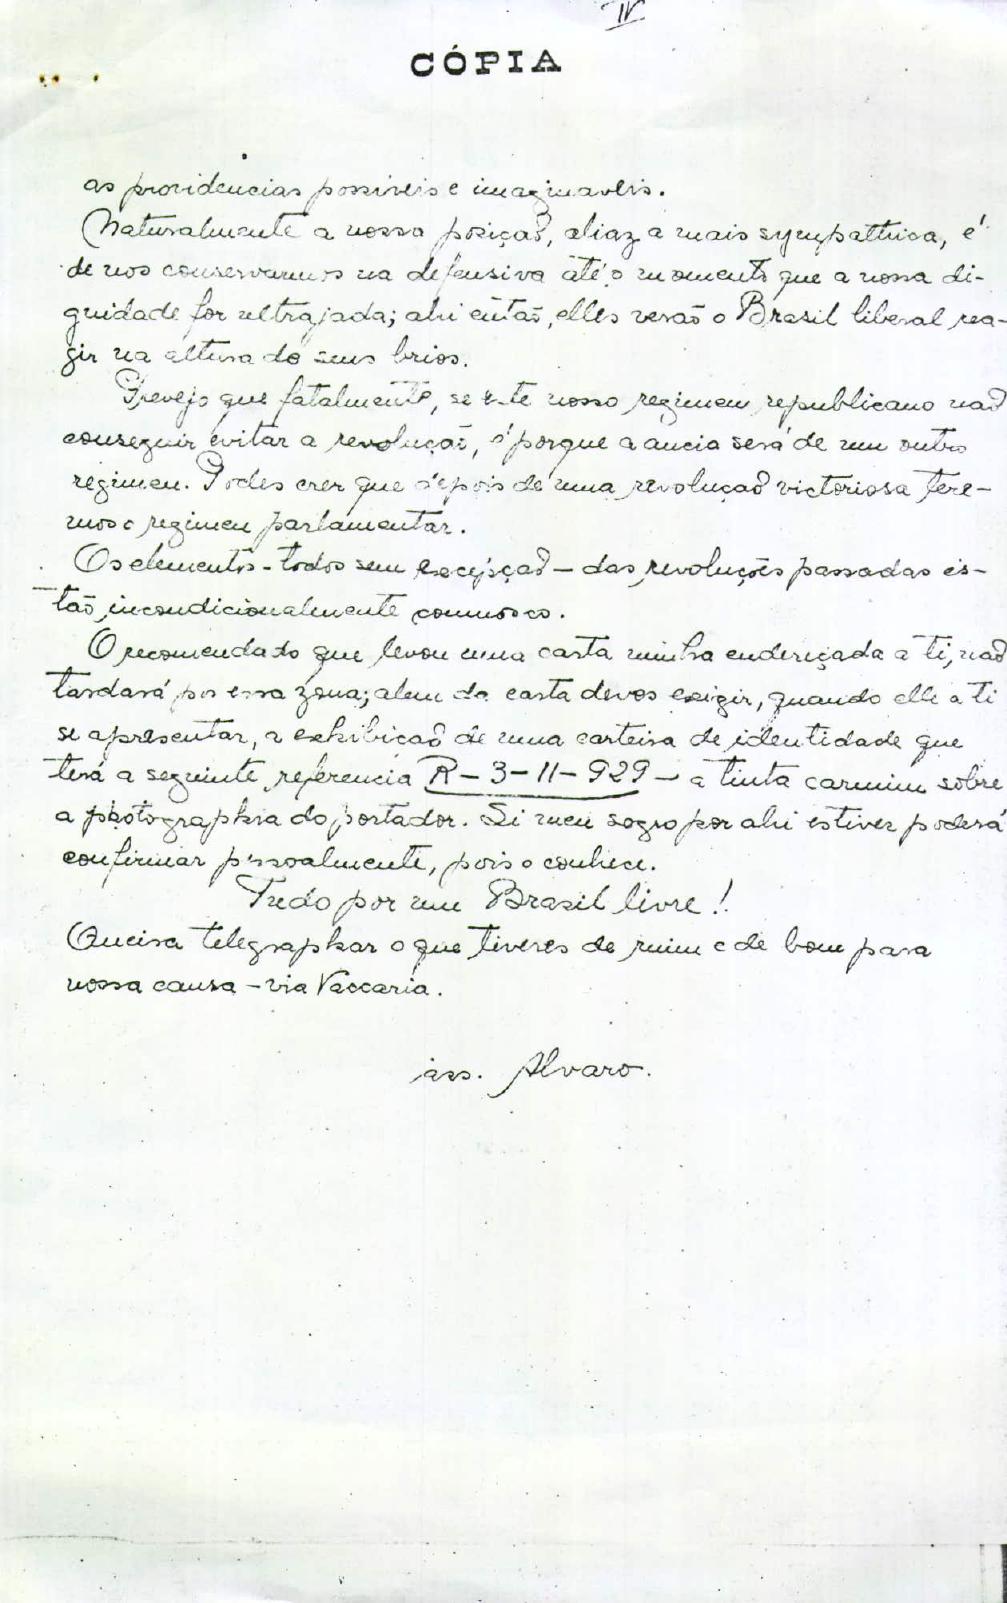 IV
CÓPIA
as providencias possiveis e imaginaveis.
Naturalmente a nossa posição, aliaz a mais sympathica, é
de nos conservarmos na defensiva até o momento que a nossa di-
gnidade for ultrajada; ahi então, elles verão o Brasil liberal rea-
gir na altura do seus brios.
Prevejo que fatalmente, se este nosso regimen republicano não
conseguir evitar a revolução, é porque a ancia será de um outro
regimen. Podes crer que depois de uma revolução victoriosa tere-
mos o regimen parlamentar.
Os elementos - todos sem excepção - das revoluções passadas es-
tão, incondicionalmente comnosco.
O recomendado que levou uma carta minha endereçada a ti, não
tardará por essa zona; alem da carta deves exigir, quando elle a ti
se apresentar, a exhibicão de uma carteira de identidade que
terá a seguinte referencia R-3-11-929 - a tinta carmim sobre
a photographia do portador. Si meu sogro por ahi estiver poderá
confirmar pessoalmente, pois o conhece.
Tudo por um Brasil livre!
Queira telegraphar o que tiveres de ruim e de bom para
nossa causa - via Vaccaria.
ass. Alvaro.